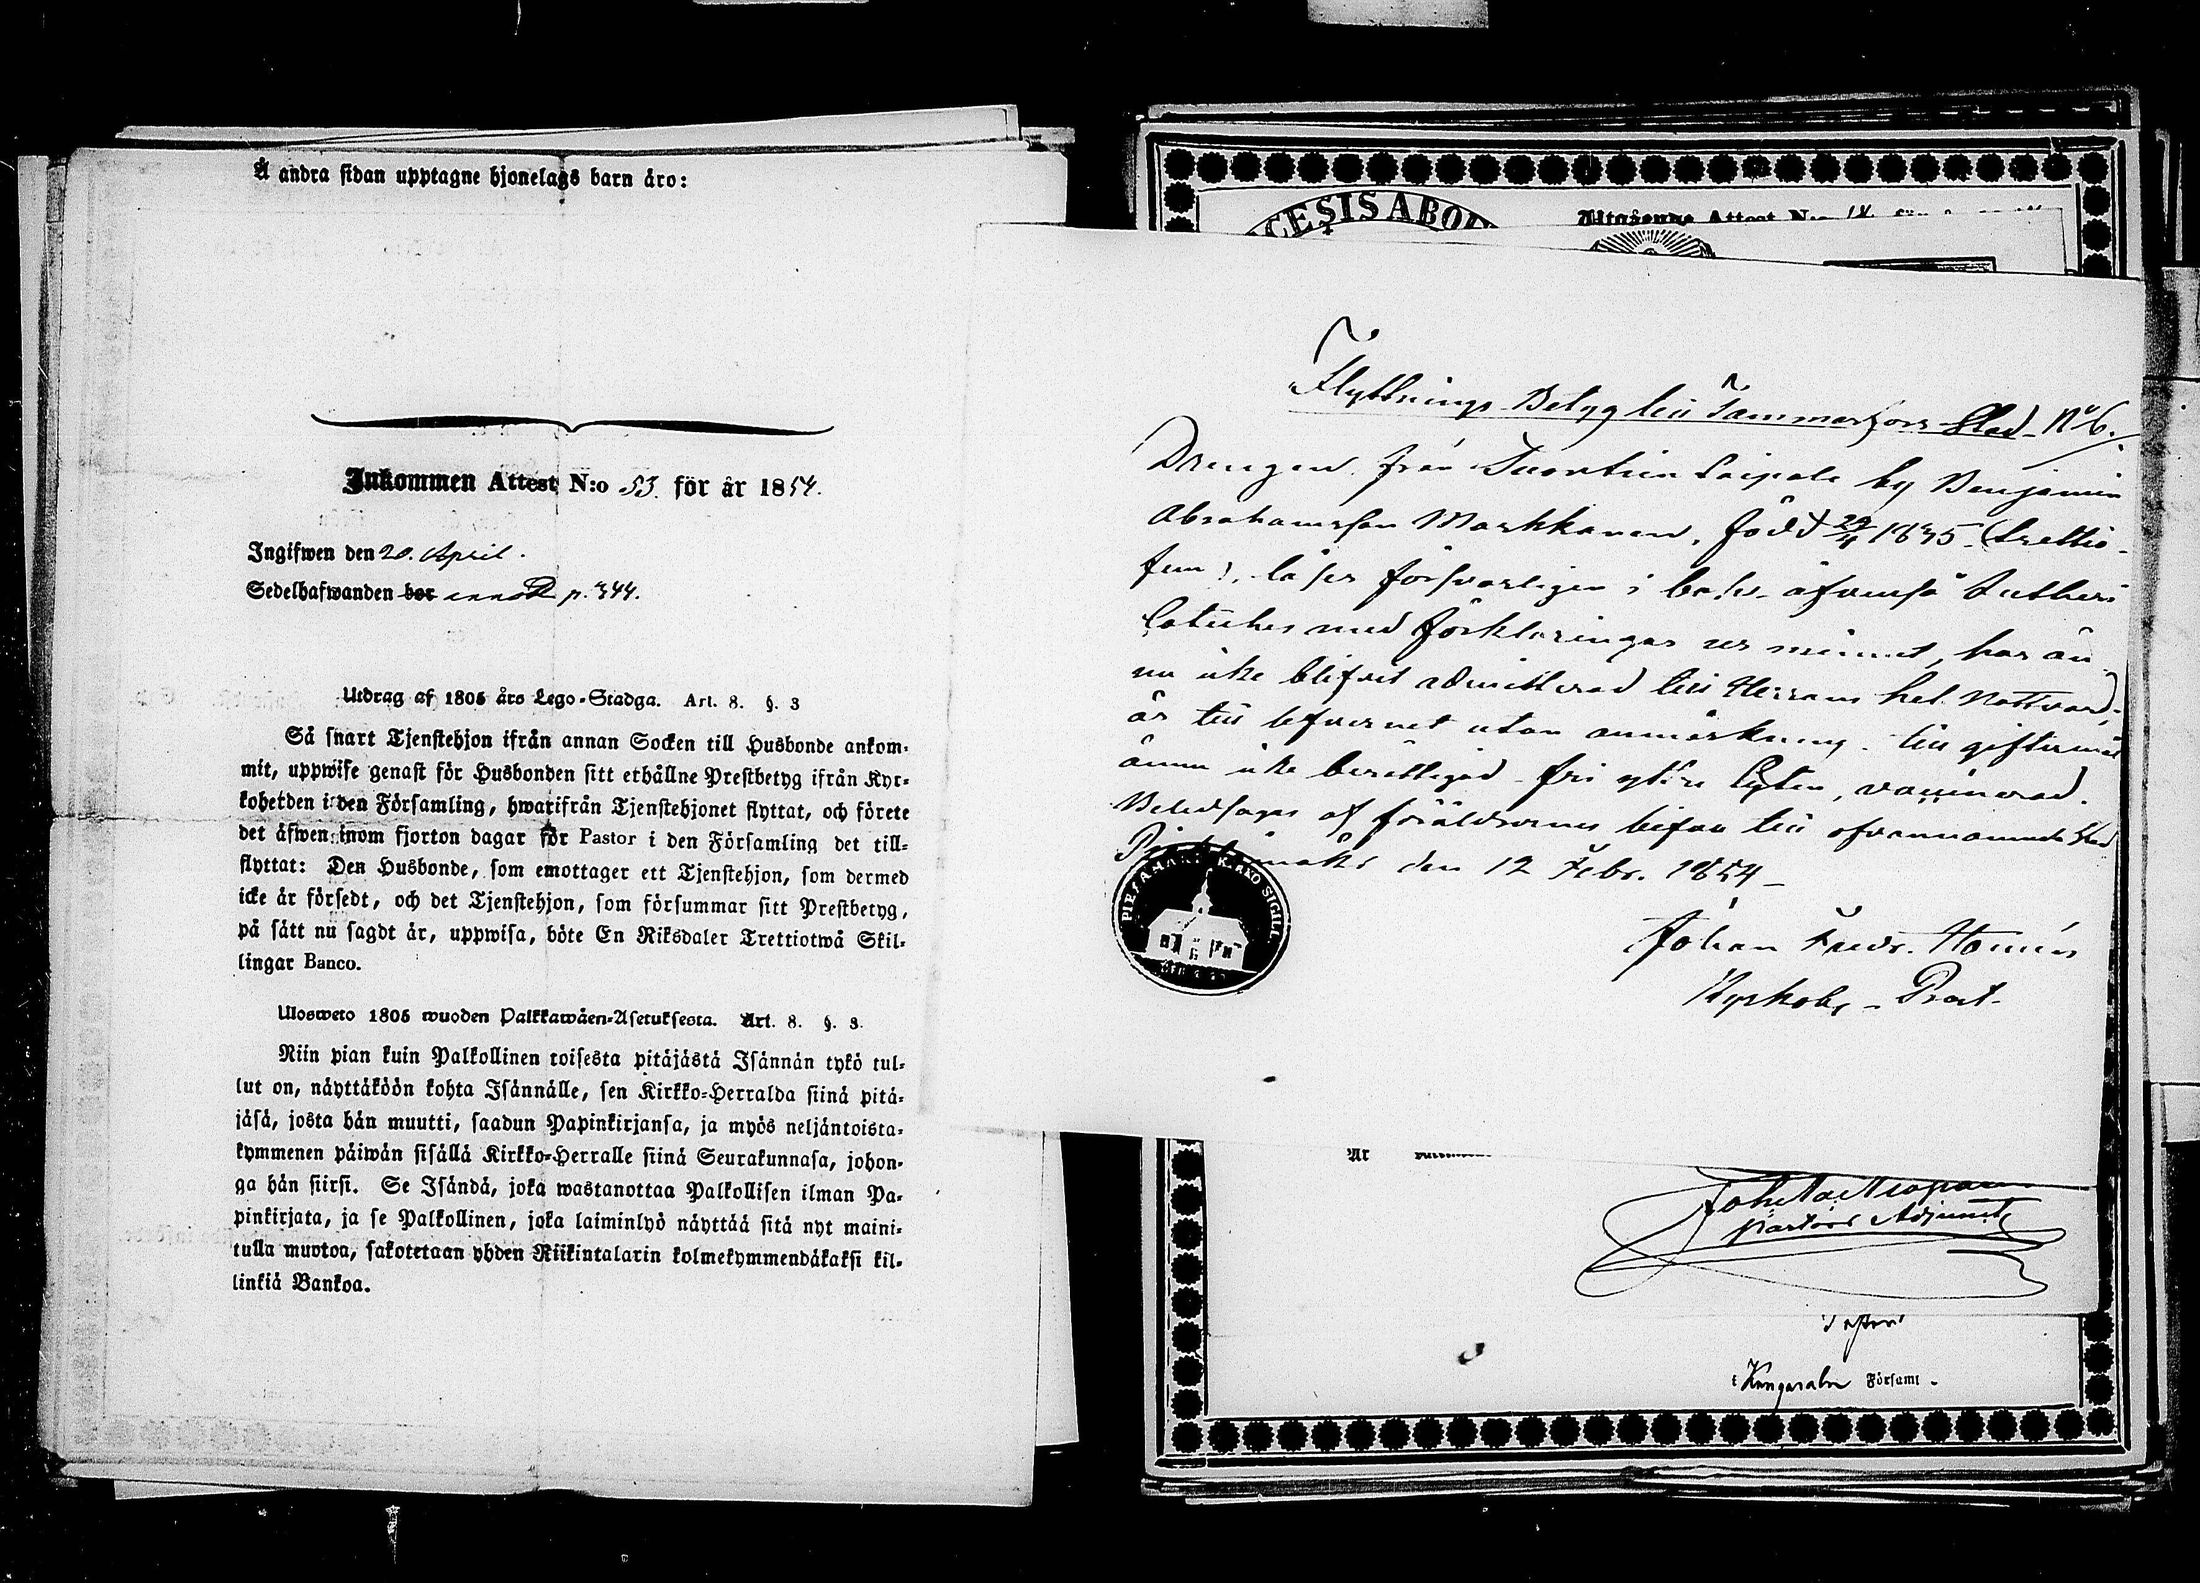 Å andra sidan upptagne hjonelags barn äro:
Inkommen Attest N:o 53. för år 1854.
Ingifwen den 20. April.
Sedelhafwanden bor p. 344.
Utdrag af 1805 års Lego-Stadga. Art. 8. §. 3
Så snart Tjenstehjon ifrån annan Socken till Husbonde ankom-
mit, uppwise genast för Husbonden sitt erhållne Prestbetyg ifrån Kyr-
koherden i den Församling, hwarifrån Tjenstehjonet flyttat, och förete
det äfwen inom fjorton dagar för Pastor i den Församling det till-
flyttat: Den Husbonde, som emottager ett Tjenstehjon, som dermed
icke är försedt, och det Tjenstehjon, som försummar sitt Prestbetyg,
på sätt nu sagdt är, uppwisa, böte En Riksdaler Trettiotwå Skil-
lingar Banco.
Ulosweto 1805 wuoden Palkkawäen-Asetuksesta. Art. 8. §. 3.
Niin pian kuin Palkollinen toisesta pitäjästä Isännän tykö tul-
lut on, näyttäköön kohta Isännälle, sen Kirkko-Herralda siinä pitä-
jäsä, josta hän muutti, saadun Papinkirjansa, ja myös neljäntoista-
kymmenen päiwän sisällä Kirkko-Herralle siinä Seurakunnasa, johon-
ga hän siirsi. Se Isändä, joka wastanottaa Palkollisen ilman Pa-
pinkirjata, ja se Palkollinen, joka laiminlyö näyttää sitä nyt maini-
tulla muotoa, sakotetaan yhden Riikintalarin kolmekymmendäkaksi kil-
linkiä Bankoa.
CESIS ABO
Utgående Attest N:o
Flyttnings Betyg till Tammerfors Stad. N:o 6.
Drengen från Tuovtin Laipala by Benjamin
Abrahamsson Markkanen, född 29/4 1835 (trettio-
fem), läser försvarligen i bok, äfvenså Lutheri
Cateches med förklaringar ur minnet, har än-
nu icke blifvit admitterad till Herrans hel. Nattvard,
är till lefvernet utan anmärkning, till giftermål
ännu icke berättigad, fri yttre lyten, vaccinerad.
Beledsagas af föräldrarnes bifall till ofvannämnde Stad
den 12 Febr. 1854
PIEKSÄMÄKI KIRKO SIGILL.
Johan Fredr.
Kyrkohe. Prost.
Ar
Pastors Adjunct
i Kangasala Församl.